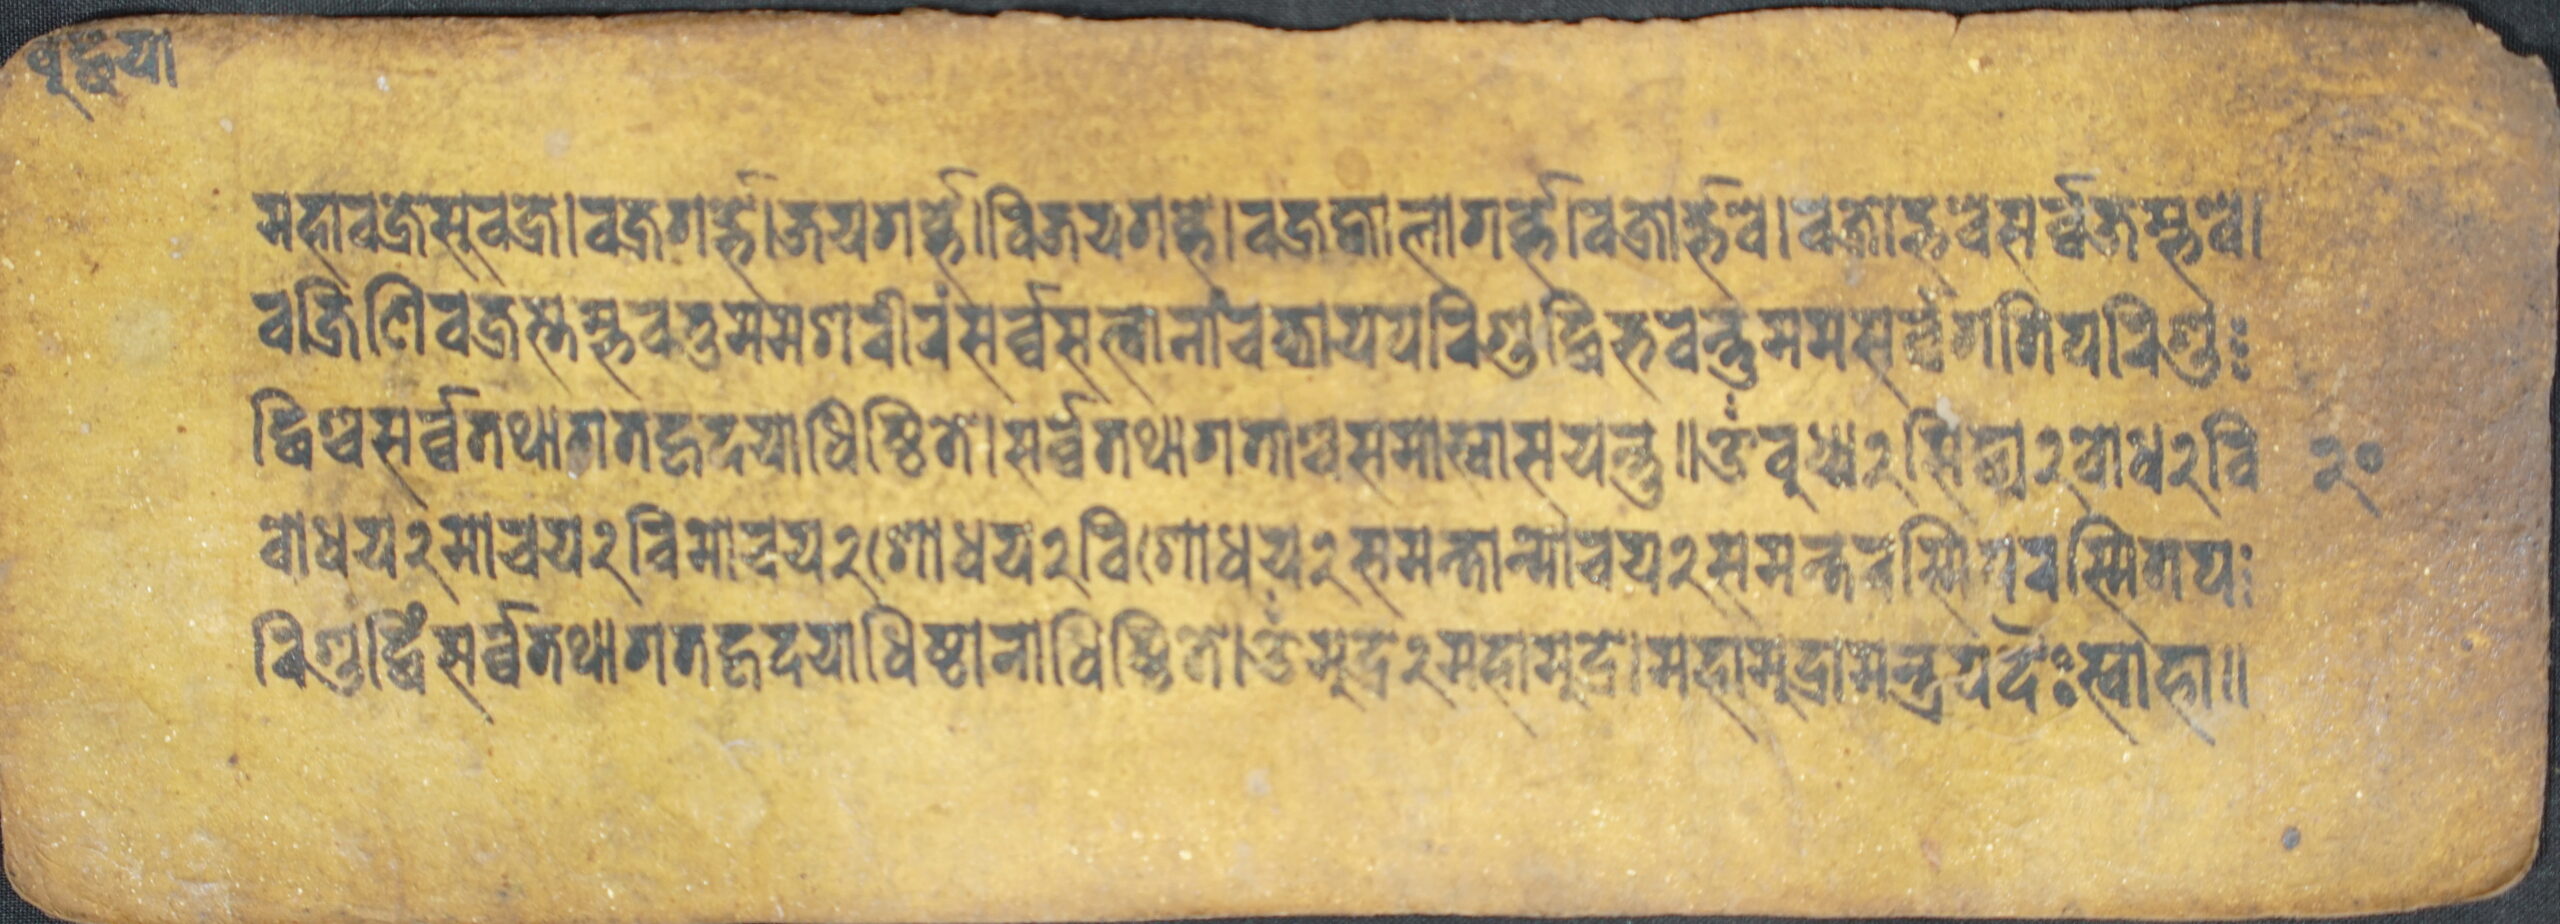 बूद्धया
महावज्रेसुवज्रे।वज्रगर्ब्भे।जयगर्ब्भे।विजयगर्ब्भे।वज्रज्वालागर्ब्भे।वज्रोद्भवे।वज्रसम्भवे।
वज्रिणिवज्रम्भवतुममशरीरंसर्व्वसत्त्वानांचकायपरिशुद्धिभवन्तुममसर्व्वगतिपरिशुः
द्धिश्चसर्व्वतथागतहृदयाधिष्ठिते।सर्व्वतथागताश्चसमास्वासयन्तु॥ॐबुध्य२सिद्ध्य२बोध२वि
बोधय२मोचय२विमोचय२शोधय२विशोधय२समन्तान्मोचय२समन्तरस्मि
रिशुद्धिंसर्व्वतथागतहृदयाधिष्ठानाधिष्ठिते।ॐमुद्रे२महामुद्रे।महामुद्रामन्त्रपदैःस्वाहा॥
२०